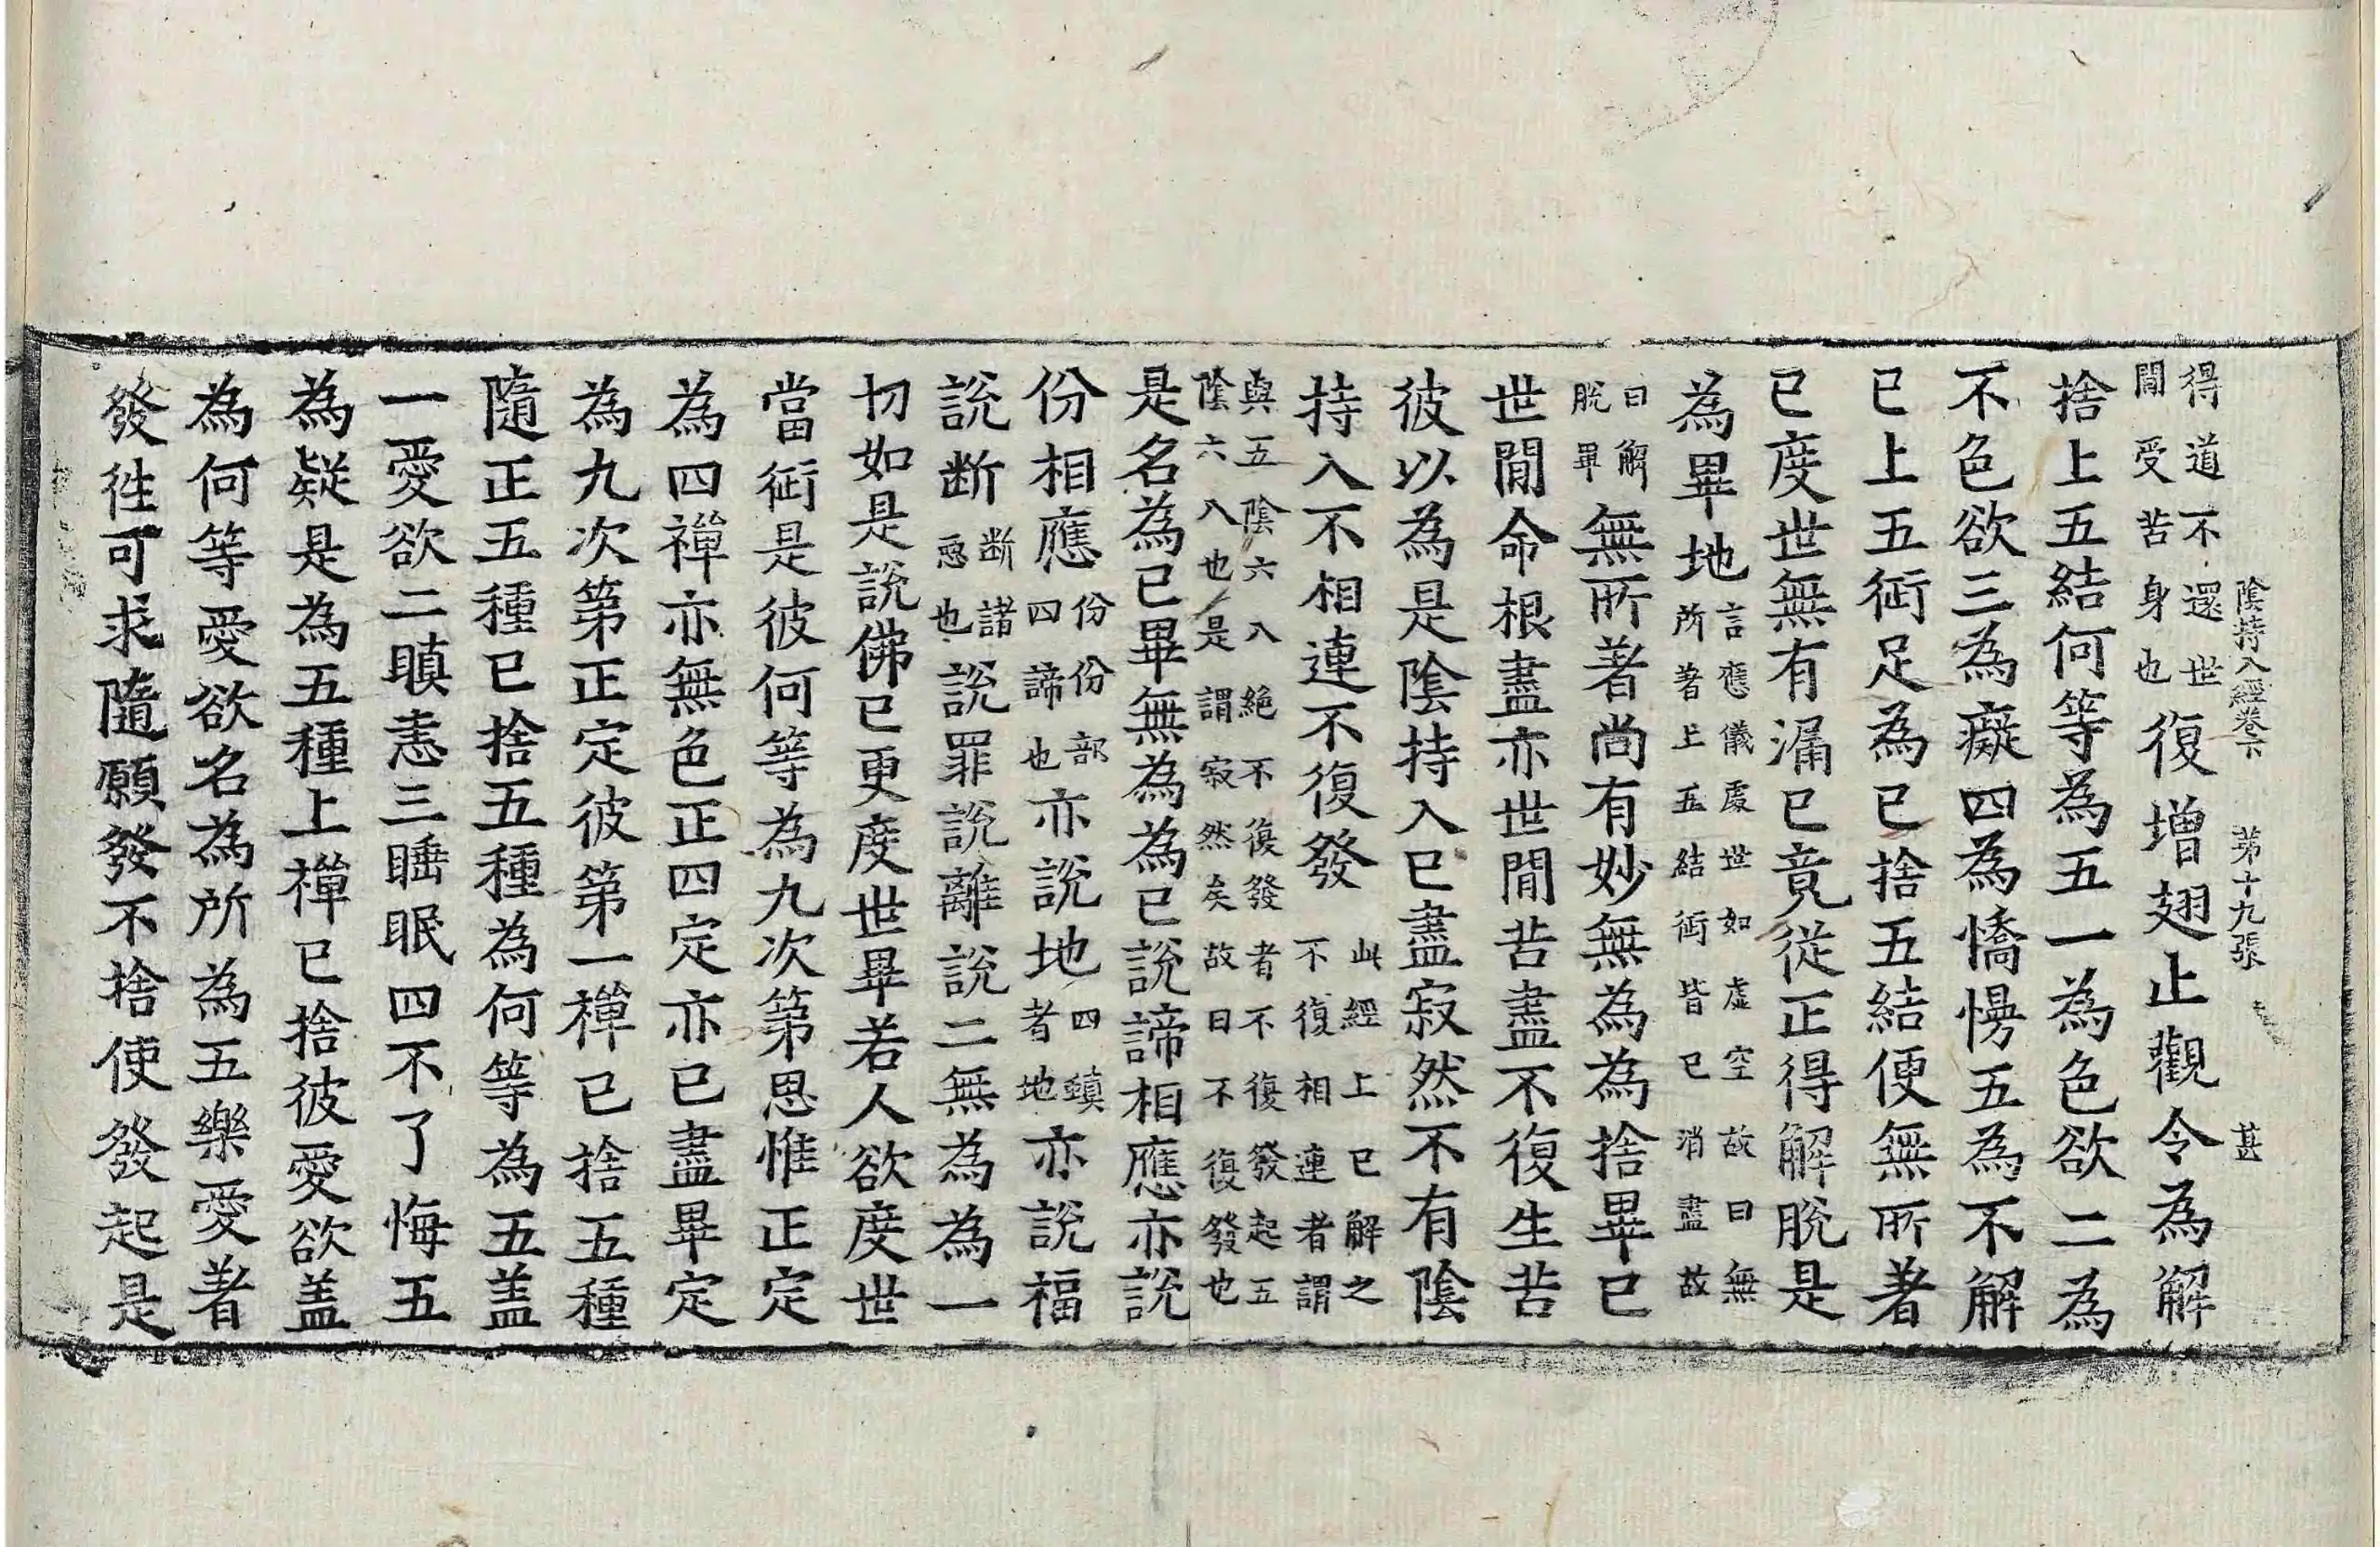 陰持入經卷下　第十九張　甚
得道不還世
間受苦身也
復增翅止觀令為解
捨上五結何等為五一為色欲二為
不色欲三為癡四為憍慢五為不解
已上五衍足為已捨五結便無所著
已度世無有漏已竟從正得解脫是
為畢地
言應儀處世如虛空故曰無
所著上五結衍皆已消盡故
曰解
脫畢
無所著尚有妙無為為捨畢已
世間命根盡亦世間苦盡不復生苦
彼以為是陰持入已盡寂然不有陰
持入不相連不復發
此經上已解之
不復相連者謂
與五陰六入絕不復發者不復發起五
陰六入也是謂寂然矣故曰不復發也
是名為已畢無為為已說諦相應亦說
份相應
份份部
四諦也
亦說地
四蟥
者地
亦說福
說断
断諸
惡也
說罪說離說二無為為一
切如是說佛已更度世畢若人欲度世
當衍是彼何等為九次第思惟正定
為四禪亦無色正四定亦已盡畢定
為九次第正定彼第一禪已捨五種
隨正五種已捨五種為何等為五盖
一愛欲二瞋恚三睡眠四不了悔五
為疑是為五種上禪已捨彼愛欲盖
為何等愛欲名為所為五樂愛著
發徃可求隨願發不捨使發起是